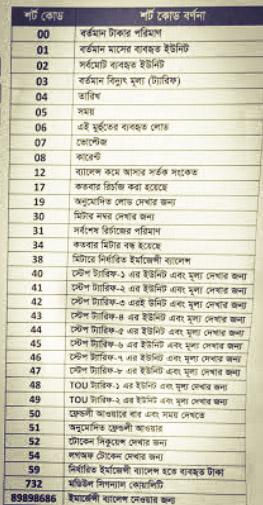 শর্ট কোড শর্ট কোড বর্ণনা
00 বর্তমান টাকার পরিমাণ
01 বর্তমান মাসের ব্যবহৃত ইউনিট
02 সর্বমোট ব্যবহৃত ইউনিট
03 বর্তমান বিদ্যুৎ মূল্য (ট্যারিফ)
04 তারিখ
05 সময়
06 এই মুহুর্তের ব্যবহৃত লোড
07 ভোল্টেজ
08 কারেন্ট
12 ব্যালেন্স কমে আসার সর্তক সংকেত
17 কতবার রিচার্জ করা হয়েছে
19 অনুমোদিত লোড দেখার জন্য
30 মিটার নম্বর দেখার জন্য
31 সর্বশেষ রিচার্জের পরিমাণ
34 কতবার মিটার বন্ধ হয়েছে
38 মিটারে নির্ধারিত ইমার্জেন্সী ব্যালেন্স
40 স্টেপ ট্যারিফ-১ এর ইউনিট এবং মূল্য দেখার জন্য
41 স্টেপ ট্যারিফ-২ এর ইউনিট এবং মূল্য দেখার জন্য
42 স্টেপ ট্যারিফ-৩ এরই উনিট এবং মূল্য দেখার জন্য
43 স্টেপ ট্যারিফ-৪ এর ইউনিট এবং মূল্য দেখার জন্য
44 স্টেপ ট্যারিফ-৫ এর ইউনিট এবং মূল্য দেখার জন্য
45 স্টেপ ট্যারিফ-৬ এর ইউনিট এবং মূল্য দেখার জন্য
46 স্টেপ ট্যারিফ-৭ এর ইউনিট এবং মূল্য দেখার জন্য
47 স্টেপ ট্যারিফ-৮ এর ইউনিট এবং মূল্য দেখার জন্য
48 TOU ট্যারিফ-১ এর ইউনিট এবং মূল্য দেখার জন্য
49 TOU ট্যারিফ-২ এর ইউনিট এবং মূল্য দেখার জন্য
50 ফ্রেন্ডলী আওয়ারে বার এবং সময় দেখতে
51 অনুমোদিত ফ্রেন্ডলী আওয়ার
52 টোকেন সিকুয়েন্স দেখার জন্য
54 লগঅফ টোকেন দেখার জন্য
59 নির্ধারিত ইমার্জেন্সী ব্যালেন্স হতে ব্যবহৃত টাকা
732 মডিউল সিগন্যাল কোয়ালিটি
89898686 ইমার্জেন্সী ব্যালেন্স নেওয়ার জন্য